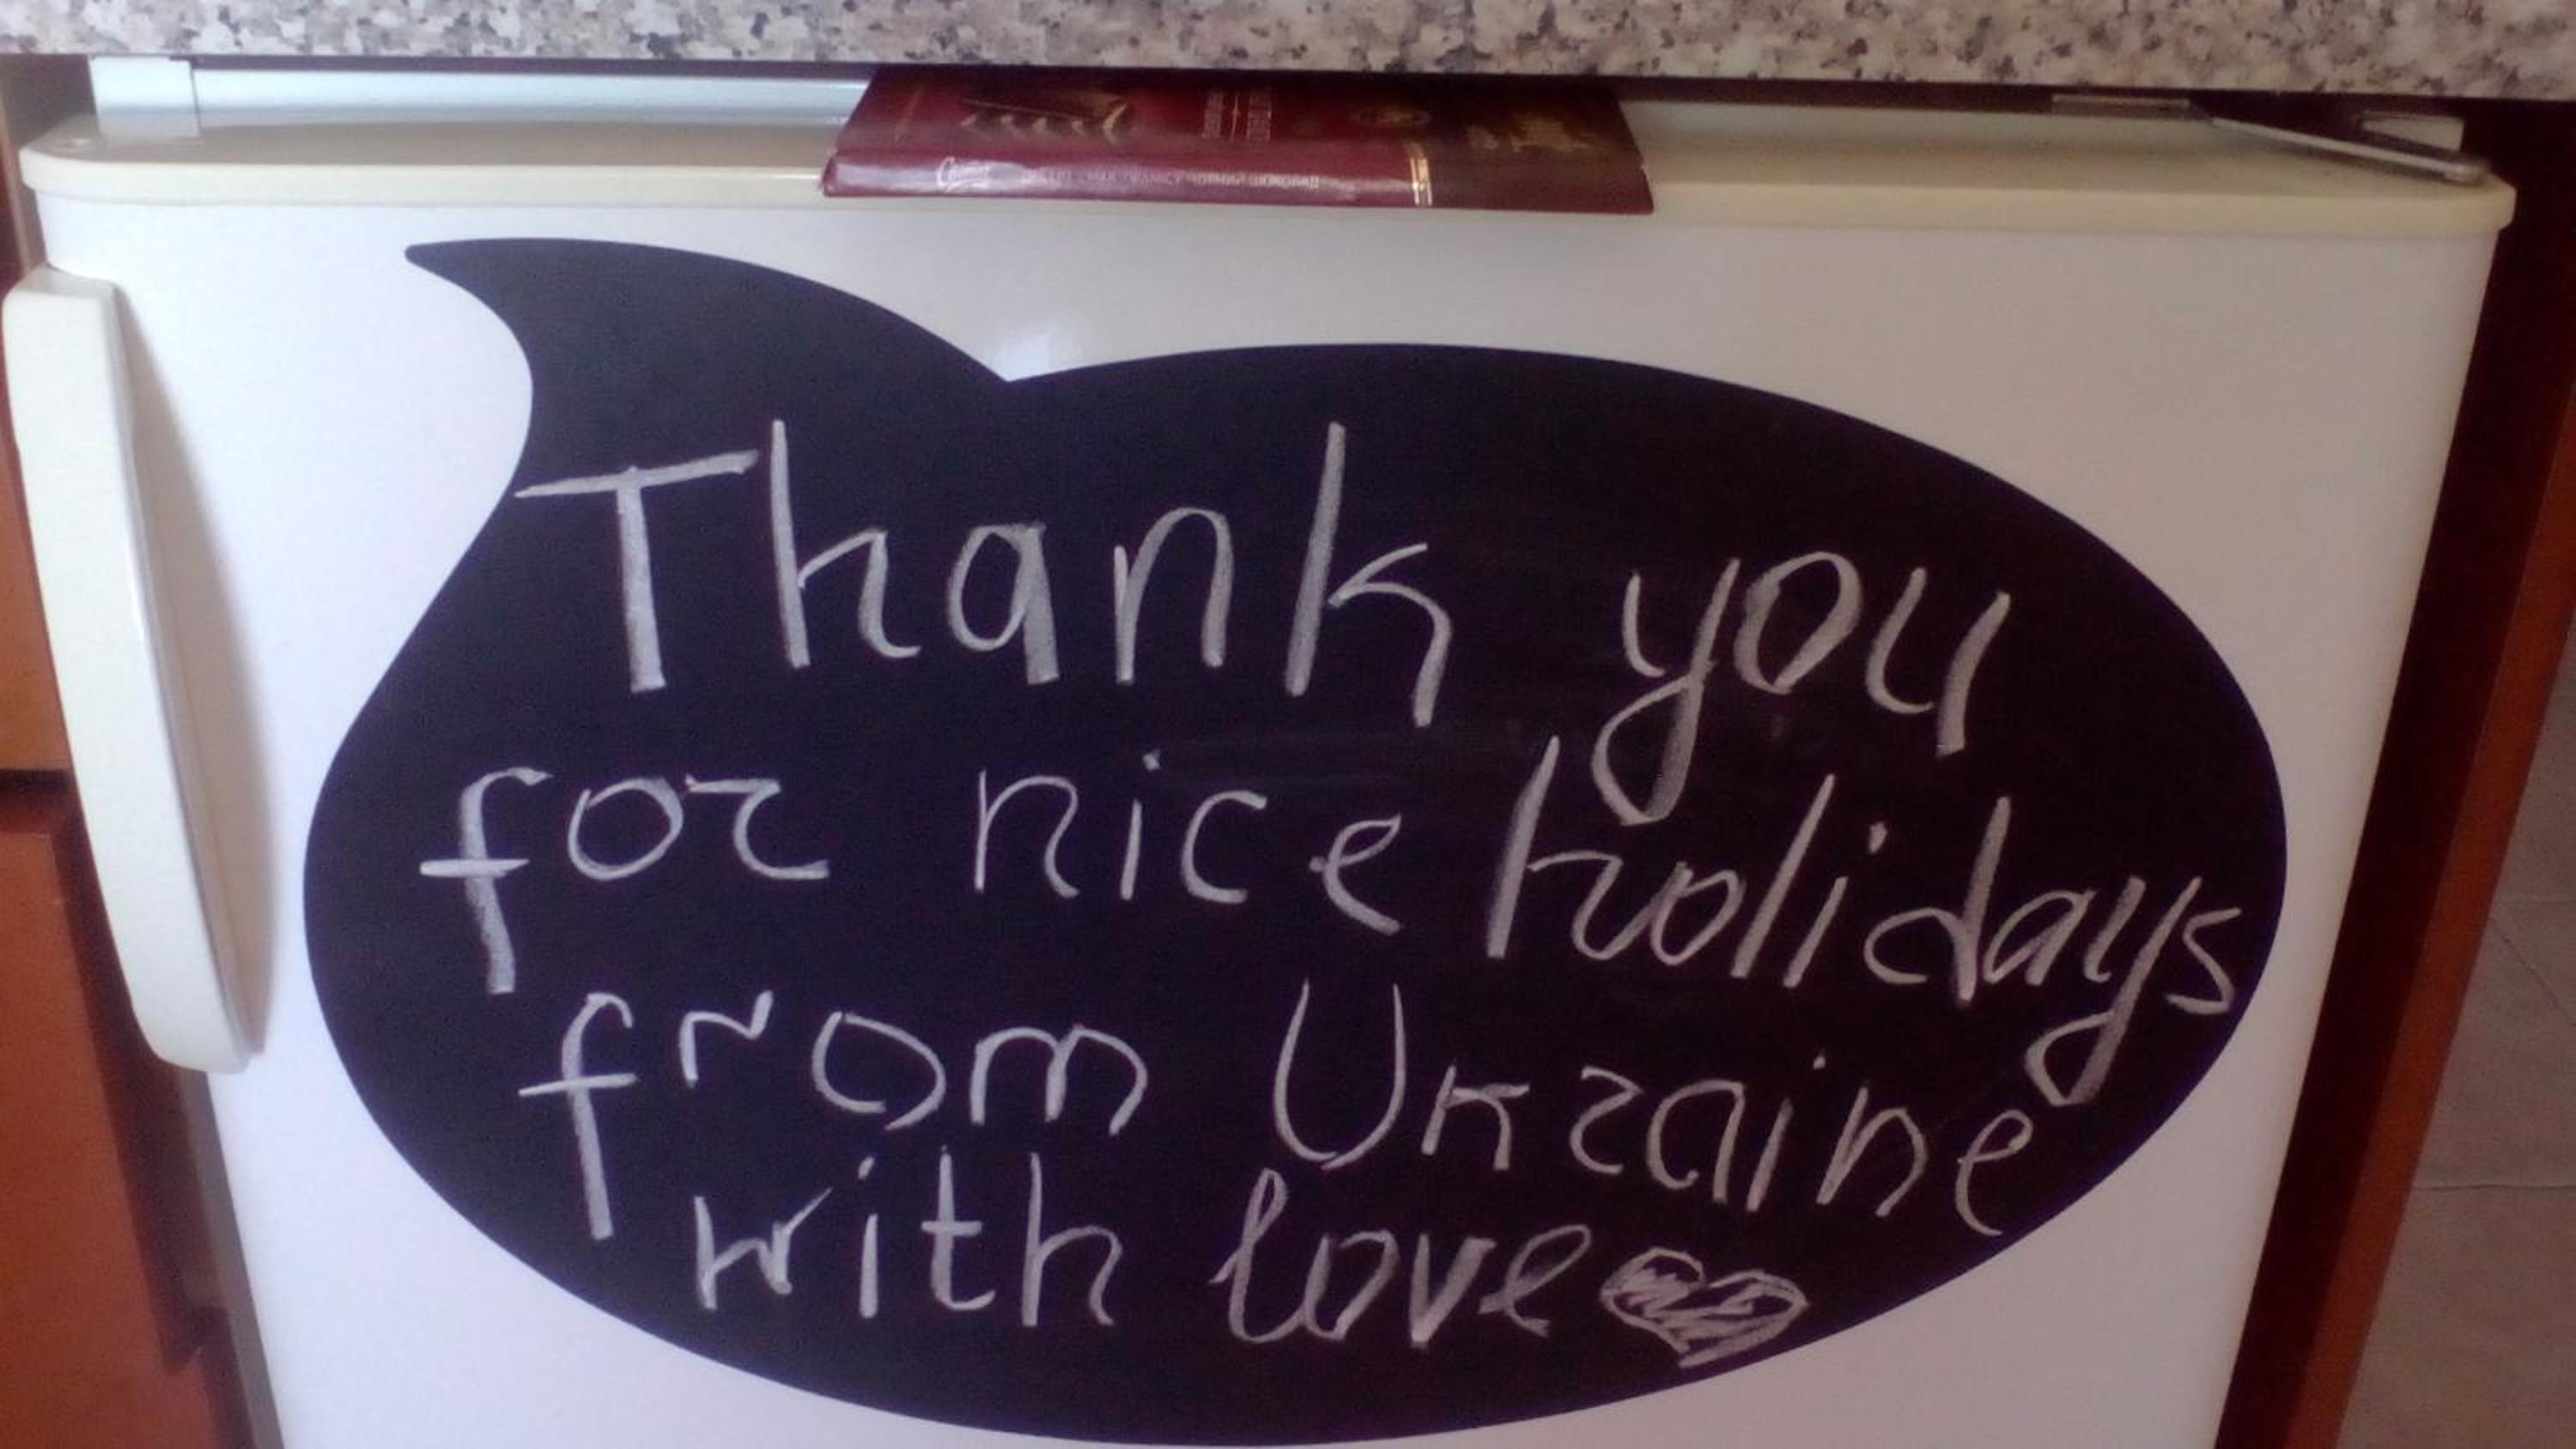 Thank you
for nice holidays
from Ukraine
with love